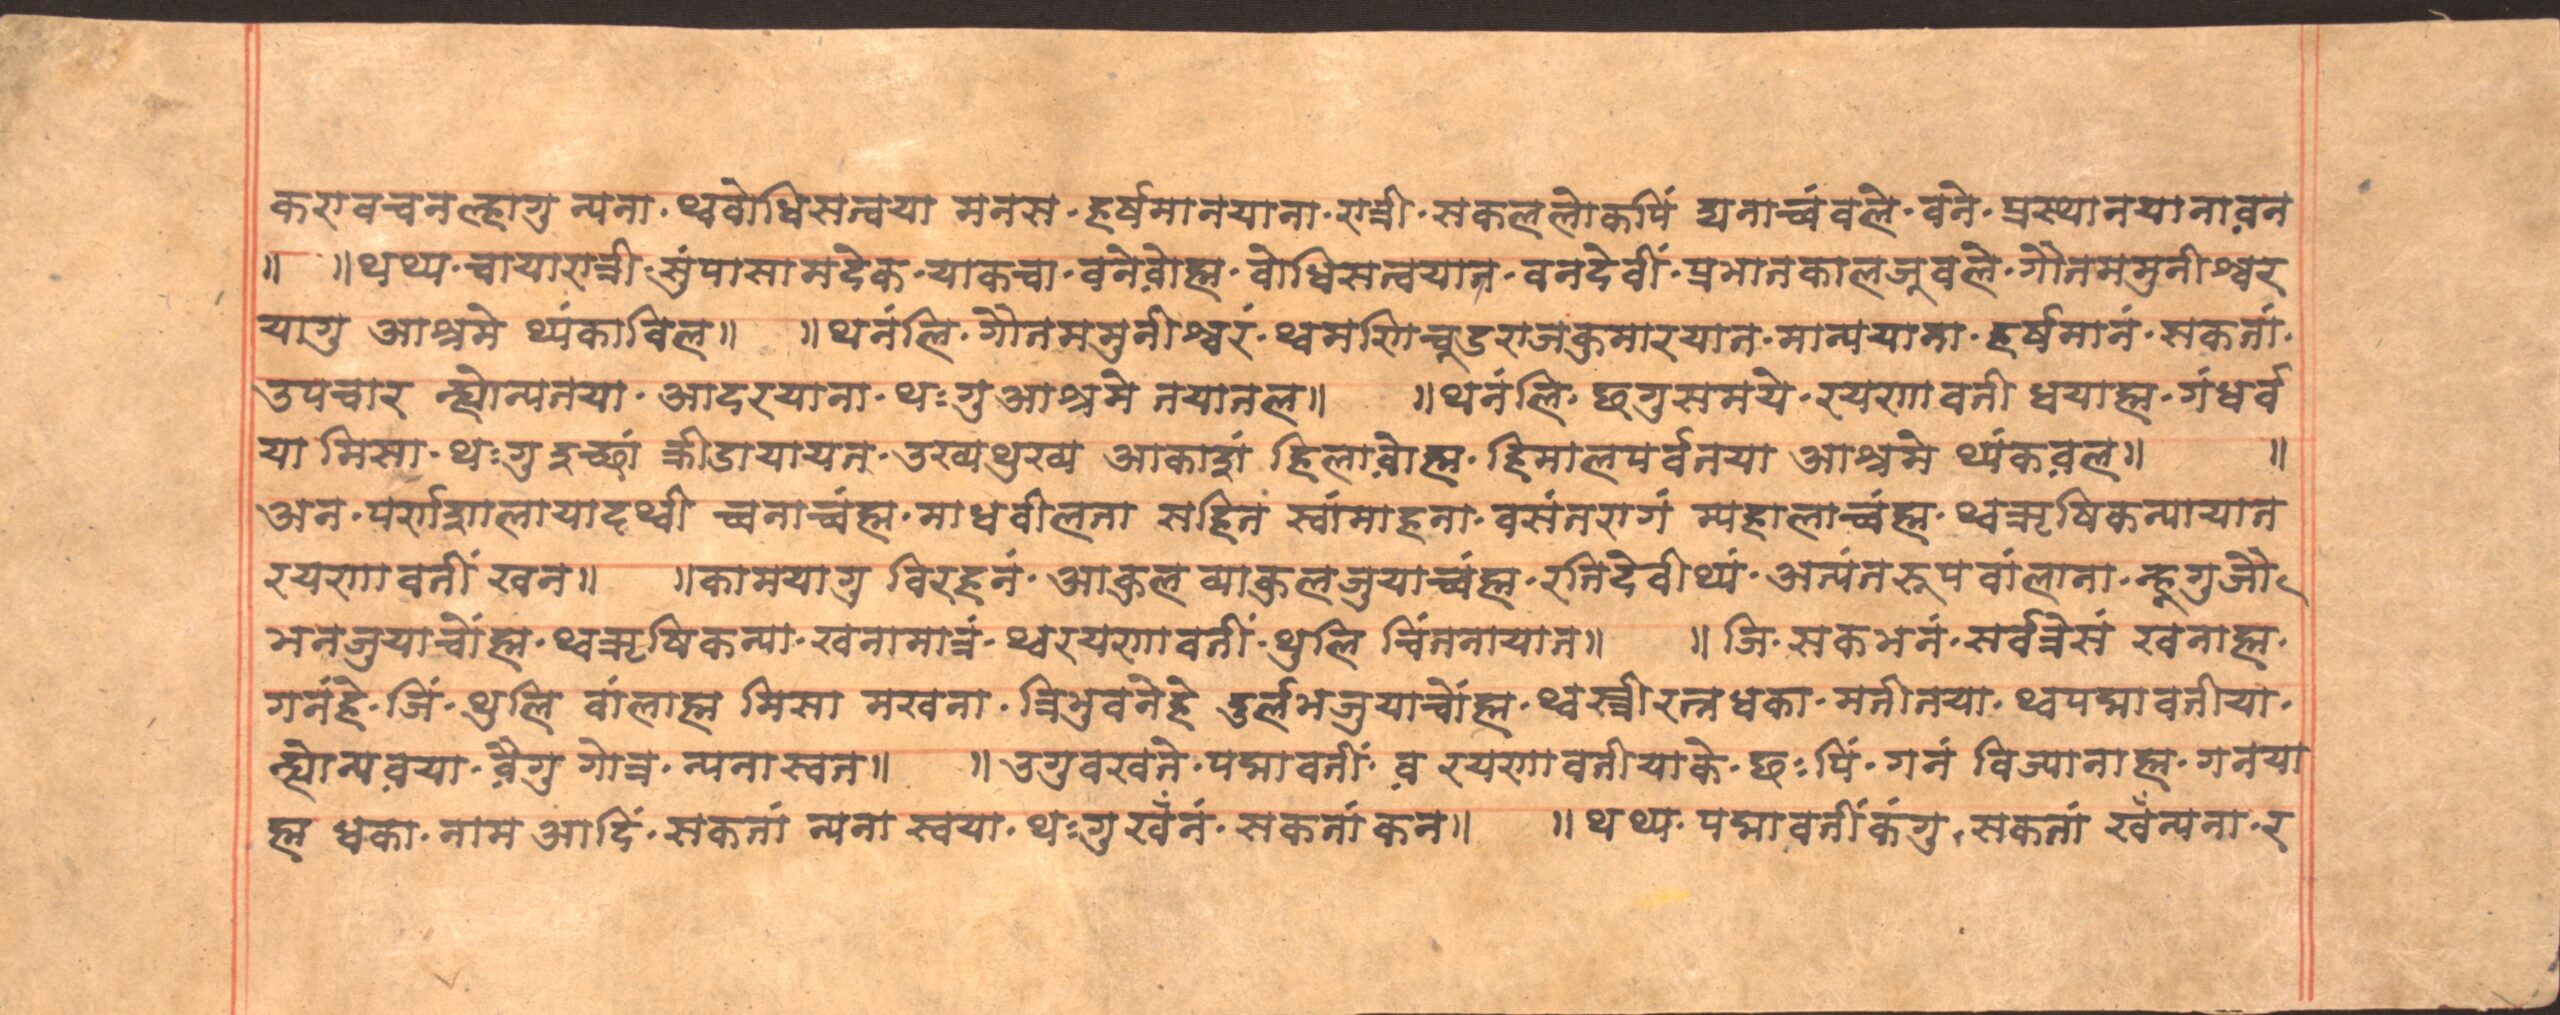 करावचनल्हागु न्यना॰ थ्वबोधिसत्वया मनस॰ हर्षमानयाना॰ रात्री॰ सकललोकपिं द्यनाच्वंवले॰ वने॰ प्रस्थानयानाव़न
॥ ॥थथ्य॰ चायारात्री॰सुंपासामदेक॰ याकचा॰ वनेव़ोह्म॰ बोधिसत्वयात॰ वनदेवीं॰ प्रभातकालजूवले॰ गौतममुनीश्वर
यागु आश्रमे थ्यंकाबिल॥ ॥थनंलि॰ गौतममुनीश्वरं॰ थ्वमणिचूडराजकुमारयात॰ मान्ययाना॰ हर्षमानं॰ सकतां॰
उपचार न्ह्योन्यतया॰ आदरयाना॰ थःगुआश्रमे तयातल॥ ॥थनंलि॰ छगुसमये॰ रयणावती धयाह्म॰ गंधर्व
या मिसा॰ थःगुइच्छां क्रीडायायत॰ उखयथुखय आकाशं हिलाव़ोह्म॰ हिमालपर्वतया आश्रमे थ्यंकव़ल॥ ॥
अन॰ पर्णशालायादथ्वी च्वनाच्वंह्म॰ माधवीलता सहितं स्वांमाहना॰ वसंतरागं म्यहालाच्वंह्म॰ थ्वऋषिकन्यायात
रयणावतीं खन॥ ॥कामयागु विरहनं॰ आकुल व्याकुलजुयाच्वंह्म॰ रतिदेवीथ्यं॰ अत्यंतरूप बांलाना॰ न्हूगुजौ
भनजुयाचोंह्म॰ थ्वऋषिकन्या॰ खनामात्रं॰ थ्वरयणावतीं॰ थुलि चिंतनायात॥ ॥जि॰ सकभनं॰ सर्वत्रेसं खनाह्म॰
गनंहे॰ जिं॰ थुलि बांलाह्म मिसा मखना॰ त्रिभुवनेहे दुर्लभजुयाचोंह्म॰ थ्वस्त्रीरत्नधका॰ मतीतया॰ थ्वपद्मावतीया॰
न्ह्योन्यव़या॰ व़ैगु गोत्र॰ न्यनास्वत॥ ॥उगुबखते॰ पद्मावतीं॰ व़ रयणावतीयाके॰ छःपिं॰ गनं बिज्यानाह्म॰ गनया
ह्म धका॰ नाम आदिं॰ सकतां न्यना स्वया॰ थःगुखँनं॰ सकतां कन॥ ॥थथ्य॰ पद्मावतींकंगु॰ सकतां खँन्यना॰ र